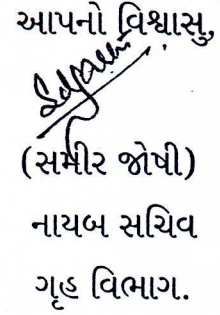 આપનો વિશ્વાસુ,
(સમીર જોષી)
નાયબ સચિવ
ગૃહ વિભાગ.